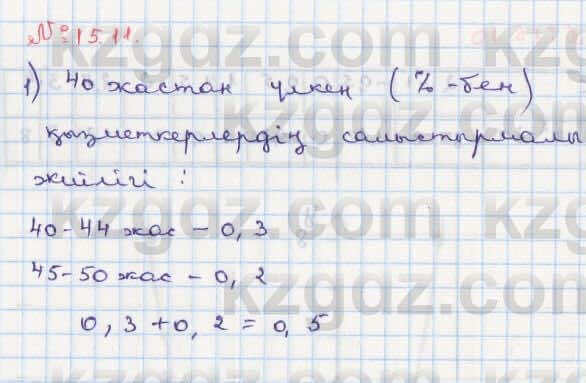 № 15.11.
1) 40 жастан үлкен (%-бен)
қызметкерлердің салыстырмалы
жиілігі :
40-44 жас – 0, 3
45-50 жас – 0, 2
0, 3 + 0, 2 = 0, 5
kzgdz.com